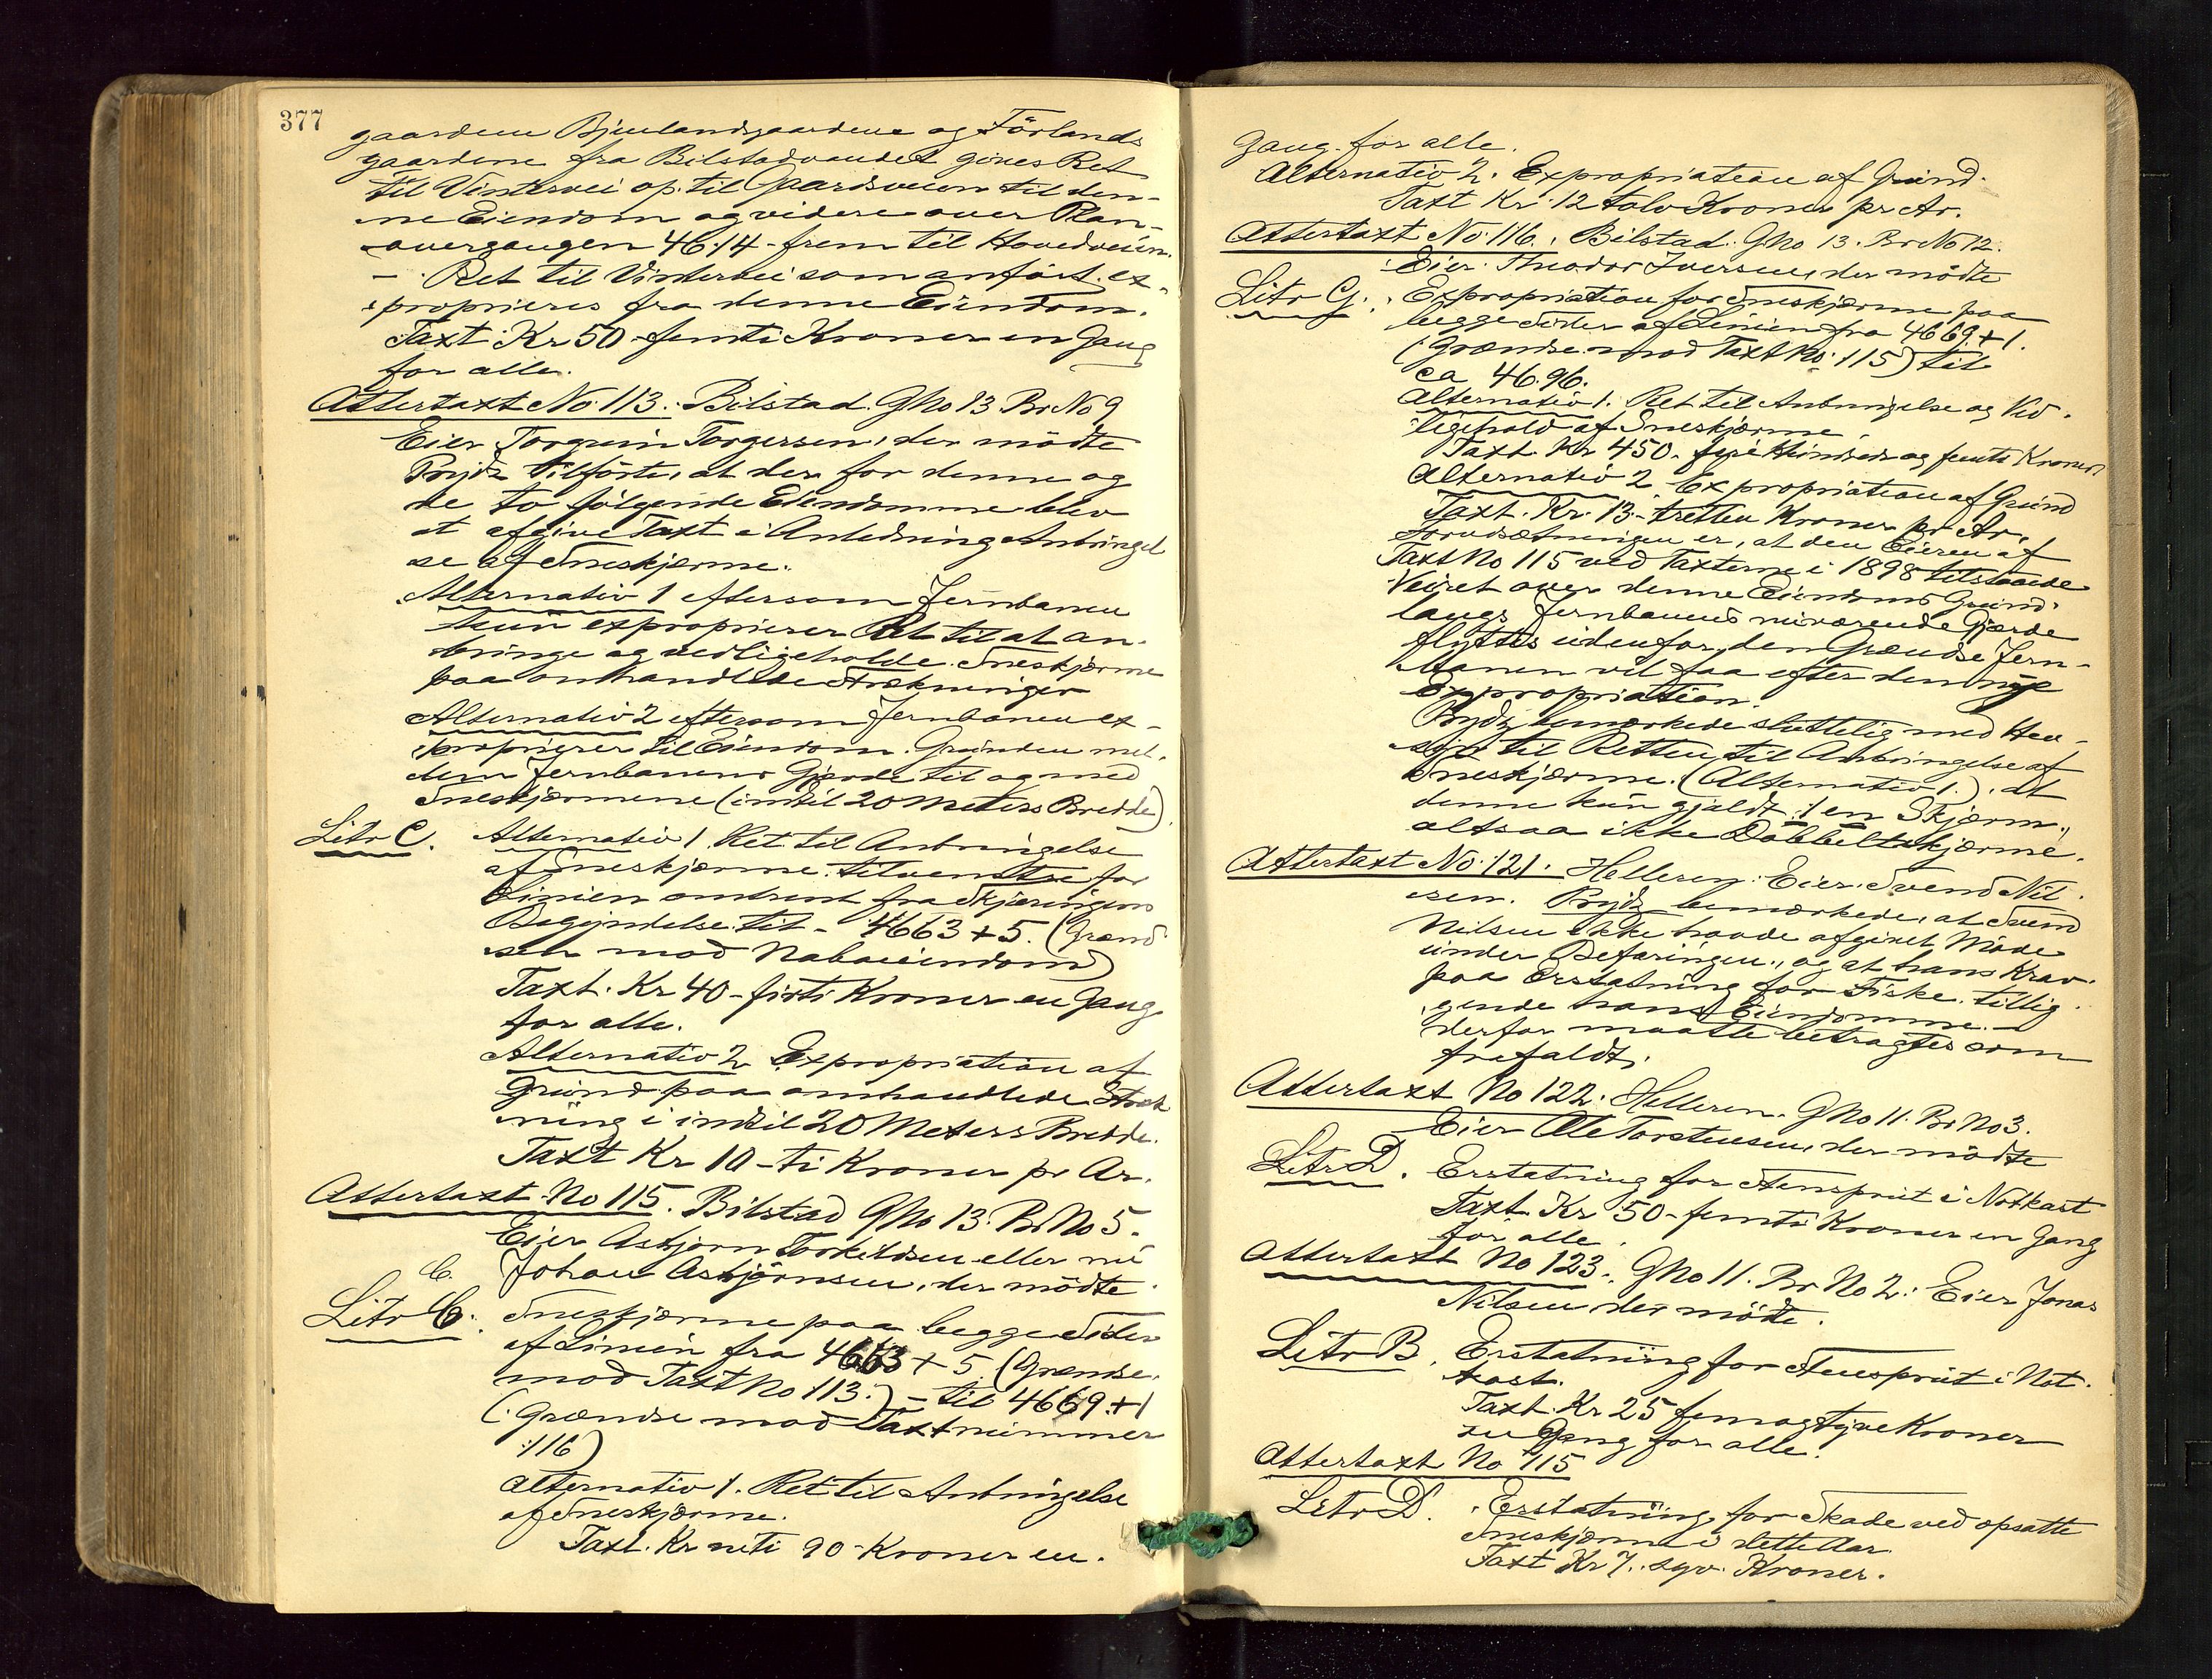 377
gaardene Bjuelandsgaardene og Förlands
gaardene fra Bilstadvandet gives Ret
til Vintervei op til Gaardsveien til den-
ne Eiendom og videre over Plan-
overgangen 4614 - frem til Hovedveien.
- Ret til Vintervei som anfört ex-
proprieres fra denne Eiendom.
Taxt Kr 50 - femti Kroner en Gang
for alle.
Attertaxt No 113. Bilstad. Gno 13 Br No 9
Eier Torgrim Torgersen, der mödte
Brydz tilförte, at der for denne og
de to fölgende Eiendomme blev
at afgive Taxt i Anledning Anbringel
se af Sneskjærme.
Alternativ 1 eftersom Jernbanen
kun exproprierer Ret til at an-
bringe og vedligeholde Sneskjærme
paa omhandlede Strækninger
Alternativ 2 eftersom Jernbanen ex-
proprierer til Eiendom Grunden mel-
dem Jernbanens Gjærde til og med
Sneskjærmene (indtil 20 Meters Bredde).
Litr C. Alternativ 1 Ret til Anbringelse
af Sneskjærme tilvenstre for
Linien omtrent fra Skjæringens
Begyndelse til - 4663 + 5. (Grænd
sen mod Naboeiendom)
Taxt. Kr 40 - firti Kroner en Gang
for alle.
Alternativ 2 Expropriation af
Grund paa omhandlede Stræk
ning i indtil 20 Meters Bredde.
Taxt Kr 10 - ti Kroner pr Ar.
Attertaxt No 115. Bilstad Gno 13. Br No 5.
Eier Asbjørn Torkildsen eller nu
Johan Asbjörnsen, der mödte.
C.
Litr C. Sneskjærme paa begge Sider
af Linien fra 4663 + 5 (Grændse
mod Taxt No 113.) - til 4669 + 1
(Grændse mod Taxtnummer
116)
Alternativ 1. Ret til Anbringelse
af Sneskjærme.
Taxt. Kr niti 90 - Kroner en.
Gang for alle.
Alternativ 2. Expropriation af Grund.
Taxt Kr. 12 tolv Kroner pr Ar.
Attertaxt No 116. Bilstad. Gno 13. Br No 12.
Eier Theodor Iversen, der mödte
Litr G. Expropriation for Sneskjærme paa
begge Sider af Linien fra 4669 + 1.
(Grændse mod Taxt No. 115) til
ca 46.96.
Alternativ 1. Ret til Anbringelse og Ved-
ligehold af Sneskjærme.
Taxt Kr 450. fire Hundrede og femti Kroner.
Alternativ 2 Expropriation af Grund
Taxt. Kr. 13 - tretten Kroner pr Ar.
Forudsætningen er, at den Eieren af
Taxt No 115 ved Taxterne i 1898 tilstaaede
Veiret over denne Eiendoms Grund
langs Jernbanens nuværende Gjærde
flyttes udenfor den Grændse Jern-
banen vil faa efter den nye
Expropriation.
Brydz bemærkede sluttelig med Hen-
syn til Retten til Anbringelse af
Sneskjærme. (Alternativ 1.), at
denne kun gjaldt 1 en Skjærm,
altsaa ikke Dobbeltskjærme.
Attertaxt No 121. Helleren. Eier Svend Nil-
sen. Brydz bemærkede, at Svend
Nilsen ikke havde afgivet Möde
under Befaringen, og at hans Krav
paa Erstatning for Fiske tillig-
gende hans Eiendomme -
derfor maatte betragtes som
frafaldt.
Attertaxt No 122. Helleren. Gno 11. Br No 3.
Eier Ole Torstensen, der mödte
Litr D. Erstatning for Stensprut i Notkast
Taxt Kr 50 - femti Kroner en Gang
for alle.
Attertaxt No 123. Gno 11. Br No 2. Eier Jonas
Nilsen der mödte.
Litr B. Erstatning for Stensprut i Not-
kast.
Taxt. Kr 25 femogtyve Kroner
en Gang for alle.
Attertaxt No 115
Litr D. Erstatning for Skade ved opsatte
Sneskjærme i dette Aar
Taxt Kr 7. syv. Kroner.